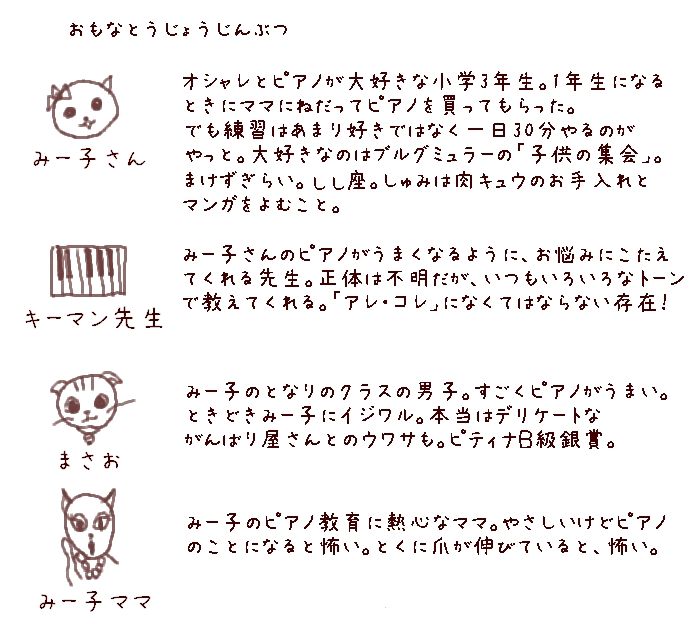 おもなとうじょうじんぶつ
オシャレとピアノが大好きな小学3年生。1年生になる
ときにママにねだってピアノを買ってもらった。
でも練習はあまり好きではなく一日30分やるのが
やっと。大好きなのはブルグミュラーの「子供の集会」。
まけずぎらい。しし座。しゅみは肉キュウのお手入れと
マンガをよむこと。
みー子さん
みー子さんのピアノがうまくなるように、お悩みにこたえ
てくれる先生。正体は不明だが、いつもいろいろなトーン
で教えてくれる。「アレ・コレ」になくてはならない存在!
キーマン先生
みー子のとなりのクラスの男子。すごくピアノがうまい。
ときどきみー子にイジワル。本当はデリケートな
がんばり屋さんとのウワサも。ピティナB級銀賞。
まさお
みー子のピアノ教育に熱心なママ。やさしいけどピアノ
のことになると怖い。とくに爪が伸びていると、怖い。
みー子ママ